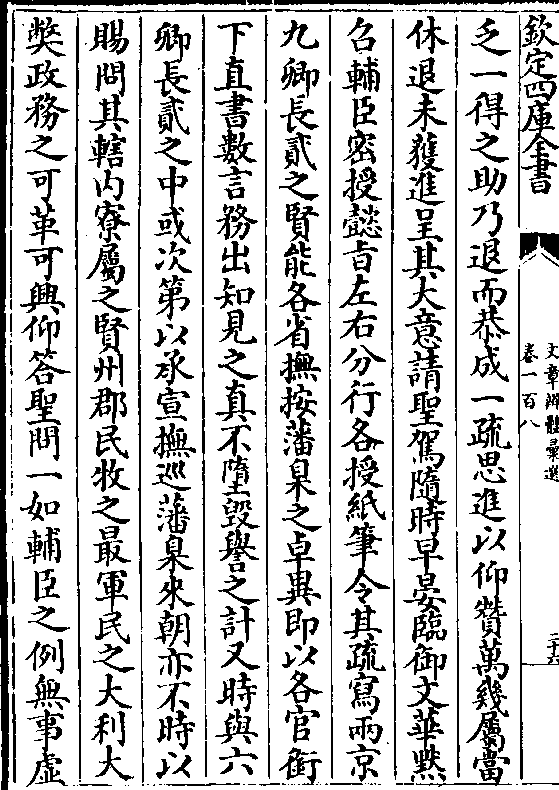 欽定四庫全書
文章辨體彙選
卷一百八
二十六
乏一得之助乃退而恭成一疏思進以仰贊萬幾屬當
休退未獲進呈其大意請聖駕隨時早晏臨御文華黙
召輔臣密授懿㫖左右分行各授紙筆令其疏寫兩京
九卿長貳之賢能各省撫按藩臬之卓異即以各官銜
下直書數言務出知見之真不墮毀譽之計又時與六
卿長貳之中或次第以承宣撫巡藩臬來朝亦不時以
賜問其轄内寮屬之賢州郡民牧之最軍民之大利大
獘政務之可革可興仰答聖問一如輔臣之例無事虛